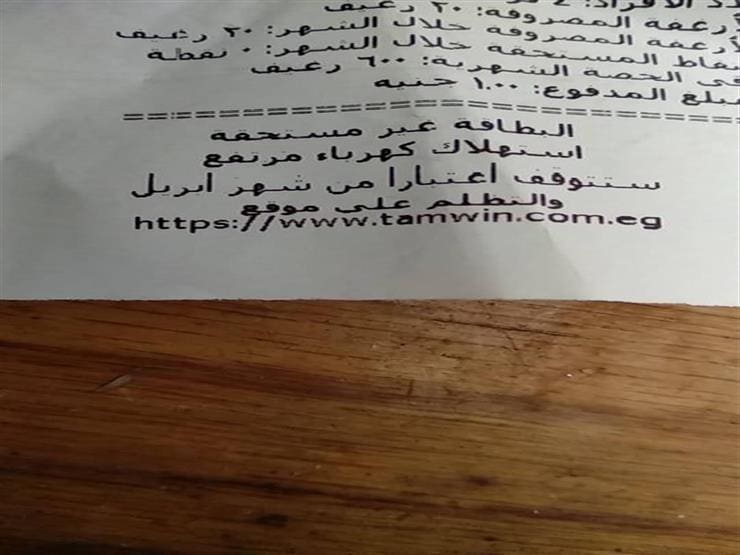 الأفراد:
الأرغفة المصروفة: ٢٠ رغيف
الأرغفة المصروفة خلال الشهر: ٢٠ رغيف
المستحقة خلال الشهر: ٠ نقطة
الحصة الشهرية: ٦٠٠ رغيف
مبلغ المدفوع: ١.٠٠ جنيه
================================
البطاقة غير مستحقه
استهلاك كهرباء مرتفع
ستتوقف اعتبارا من شهر ابريل
والتظلم على موقع
https://www.tamwin.com.eg